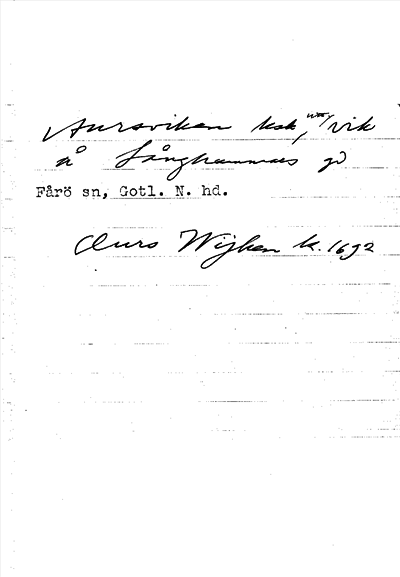 Aursviken ksk, vik
å Långhammars gd
Fårö sn, Gotl. N. hd.
Aurs Wijken k. 1692